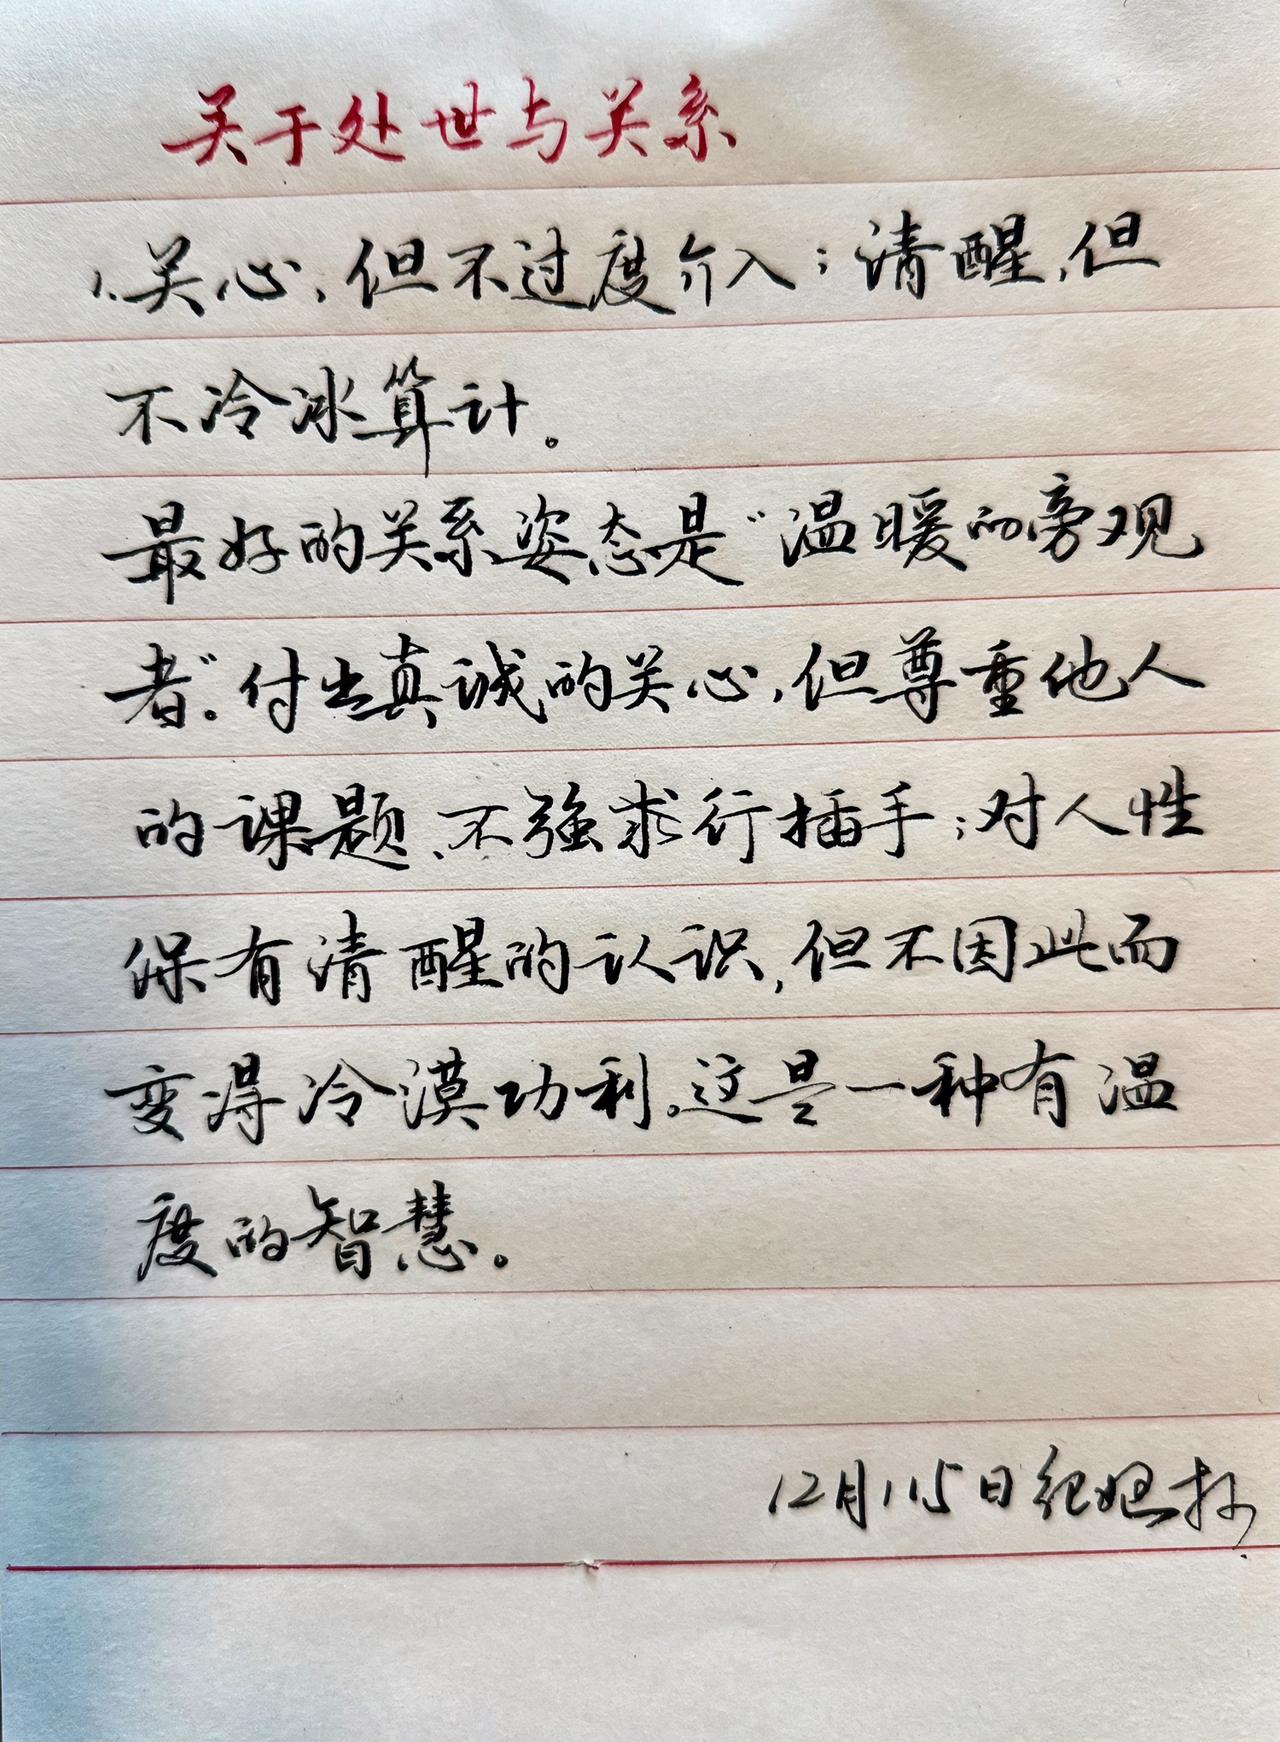 关于处世与关系
1.关心，但不过度介入；清醒，但
不冷冰算计。
最好的关系姿态是“温暖的旁观
者”。付出真诚的关心，但尊重他人
的课题、不强求行插手；对人性
保有清醒的认识，但不因此而
变得冷漠功利。这是一种有温
度的智慧。
12月115日纪娰抄